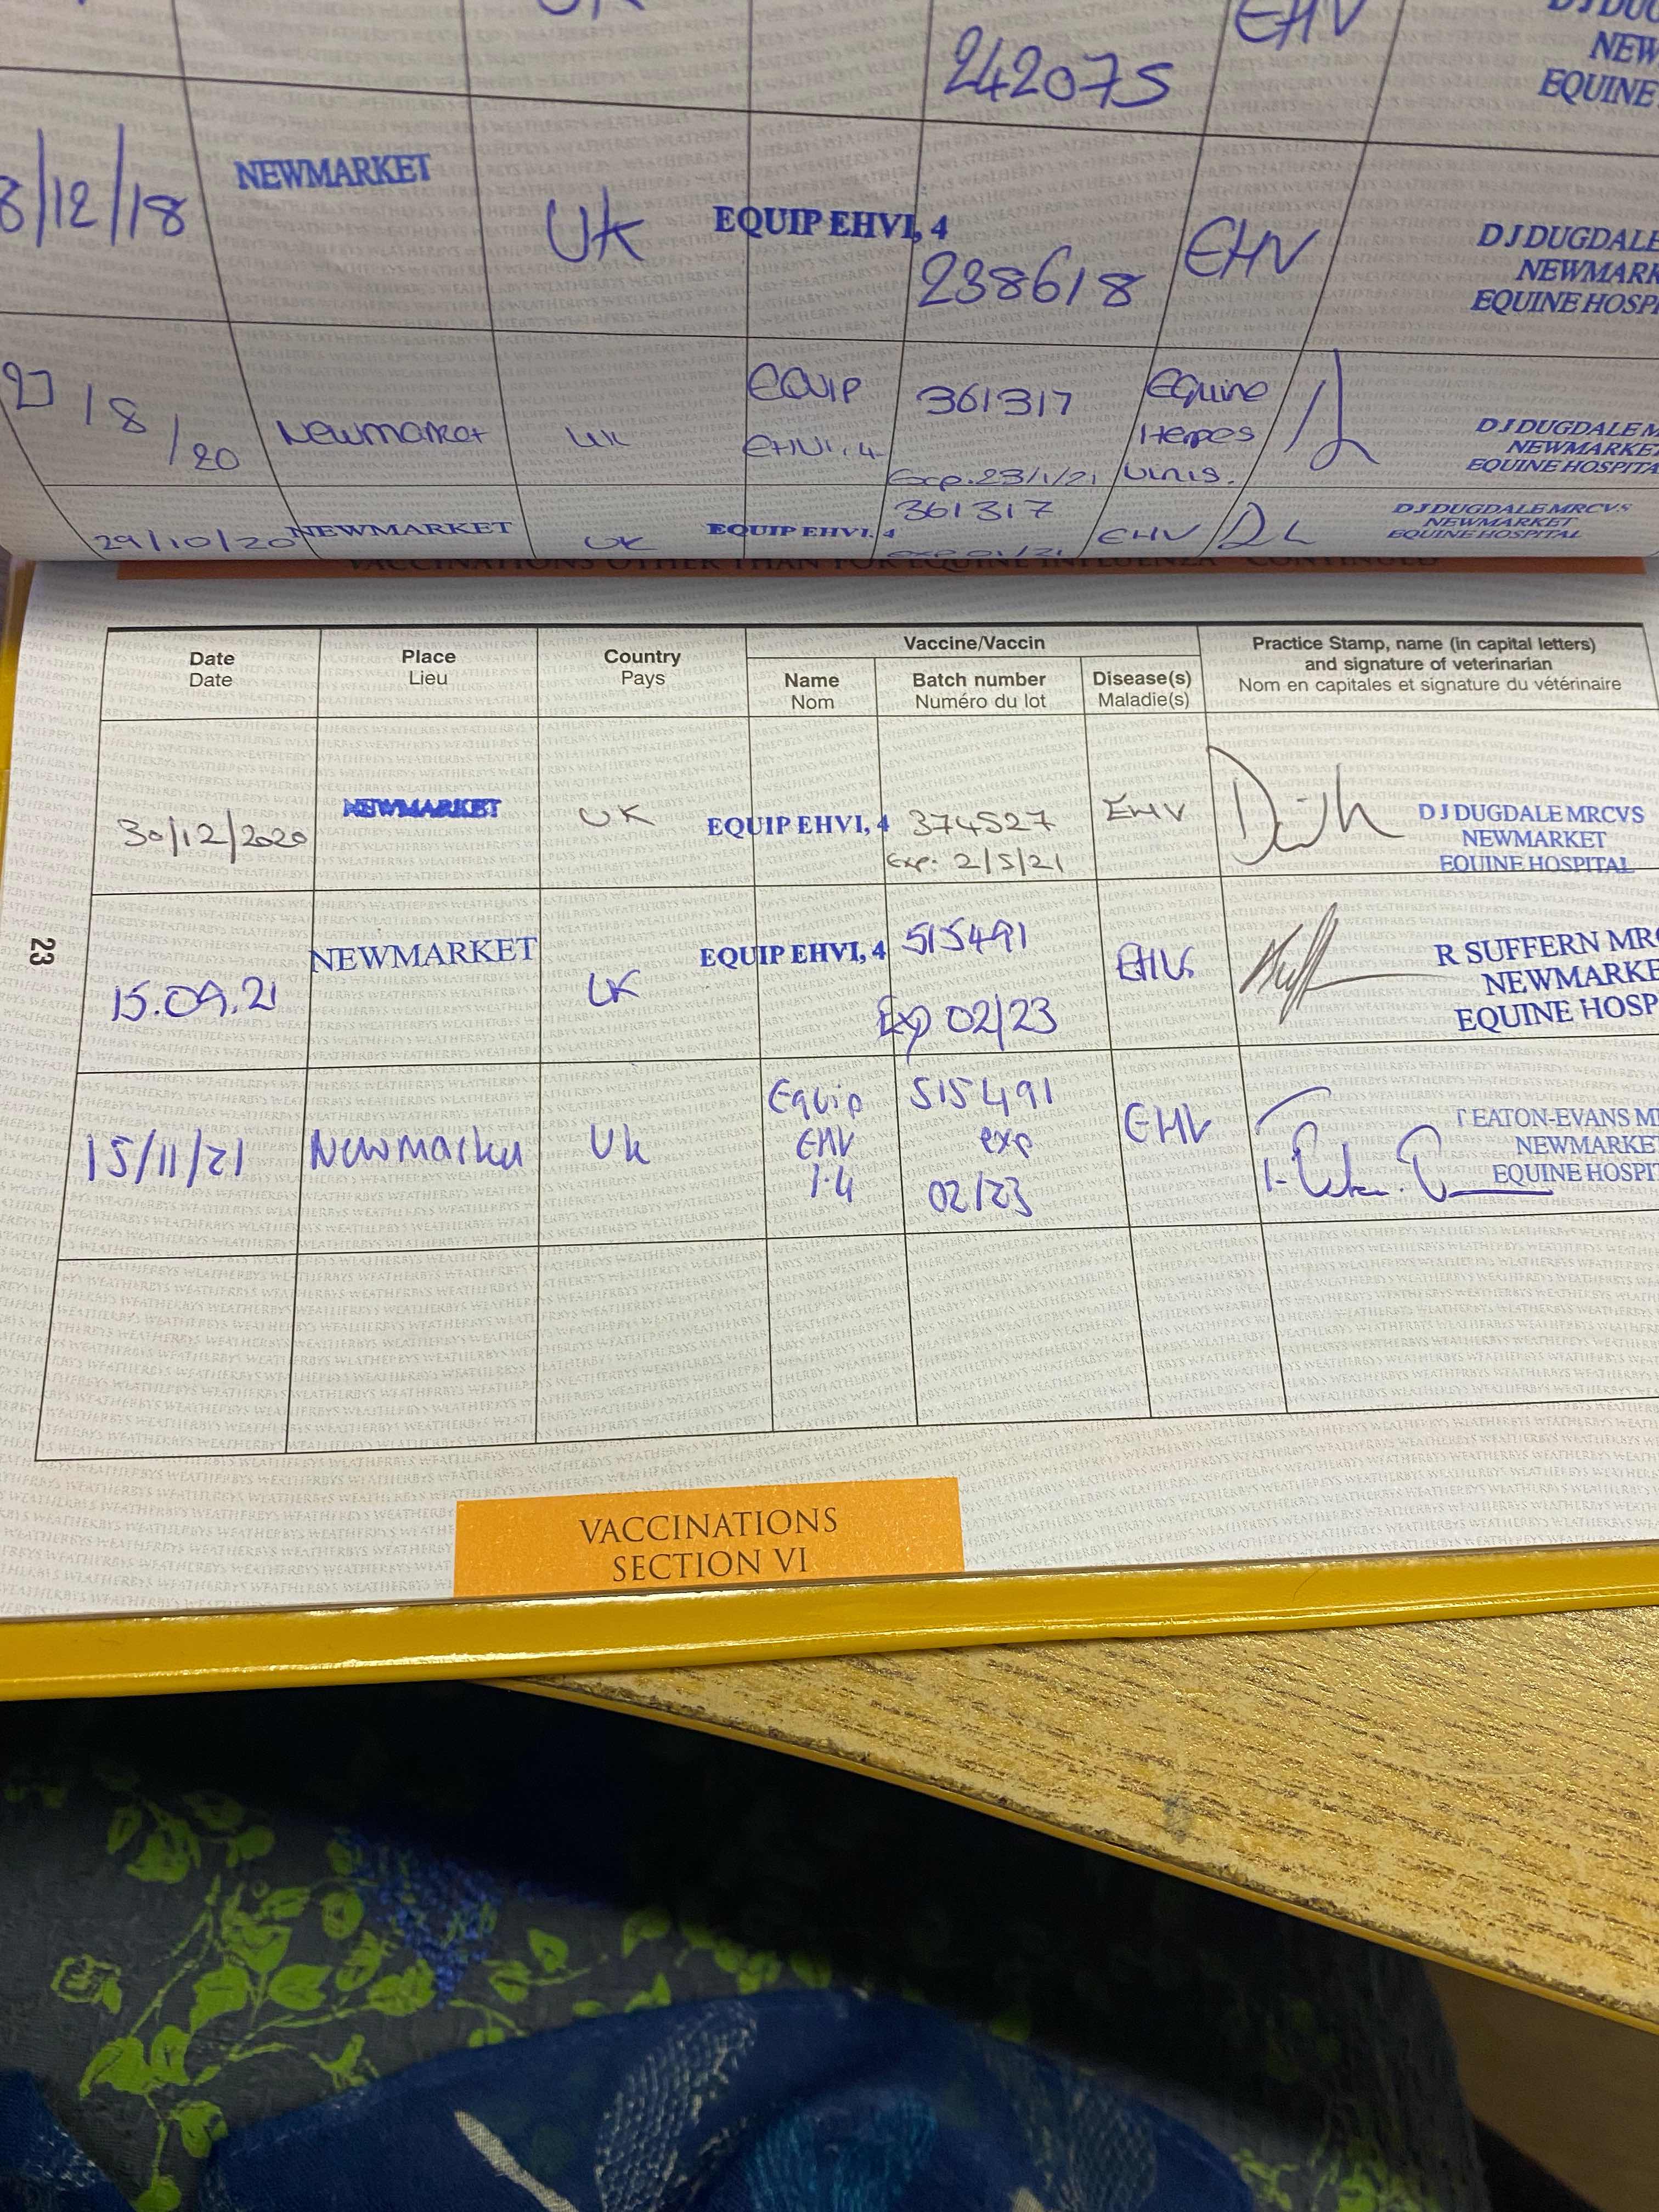 EHV
242075
NEW
EQUINE
8/12/18 NEWMARKET UK EQUIP EHVI, 4 238618 EHV
D J DUGDALE
NEWMARK
EQUINE HOSPI
27/8/20 Newmarket UK EQUIP EHVI, 4 361317 Exp. 23/1/21 Equine Herpes
D J DUGDALE M
NEWMARKET
EQUINE HOSPITA
29/10/20 NEWMARKET UK EQUIP EHVI, 4 361317 exp 01/21 EHV
D J DUGDALE MRCVS
NEWMARKET
EQUINE HOSPITAL
VACCINATIONS OTHER THAN FOR EQUINE INFLUENZA - CONTINUED
Date
Date
Place
Lieu
Country
Pays
Vaccine/Vaccin
Name
Nom
Batch number
Numéro du lot
Disease(s)
Maladie(s)
Practice Stamp, name (in capital letters)
and signature of veterinarian
Nom en capitales et signature du vétérinaire
30/12/2020 NEWMARKET UK EQUIP EHVI, 4 374527 EHV
Exp: 2/5/21
D J DUGDALE MRCVS
NEWMARKET
EQUINE HOSPITAL
15.09.21 NEWMARKET UK EQUIP EHVI, 4 515491 EHV
Exp 02/23
R SUFFERN MRC
NEWMARKE
EQUINE HOSP
15/11/21 Newmarket UK
Equip
EHV
1.4
515491
exp
02/23
EHV
T EATON-EVANS M
NEWMARKET
EQUINE HOSPIT
23
VACCINATIONS
SECTION VI